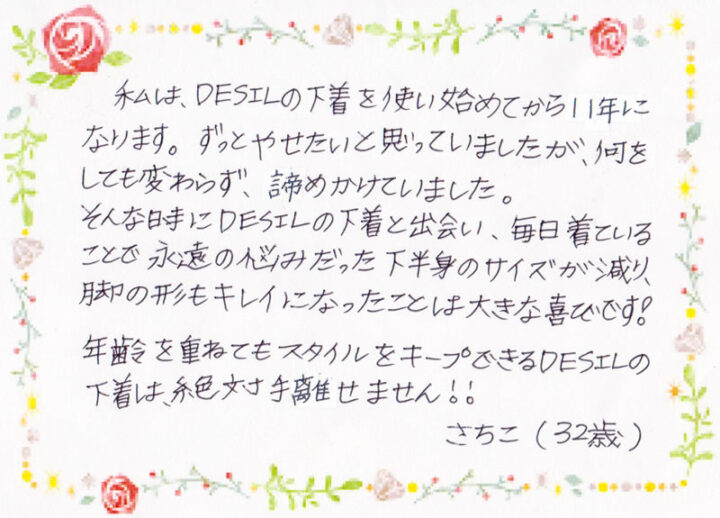 私は、DESILの下着を使い始めてから11年に
なります。ずっとやせたいと思っていましたが、何を
しても変わらず、諦めかけていました。
そんな時にDESILの下着と出会い、毎日着ている
ことで永遠の悩みだった下半身のサイズが減り、
脚の形もキレイになったことは大きな喜びです!
年齢を重ねてもスタイルをキープできるDESILの
下着は、絶対手離せません!!
さちこ(32歳)